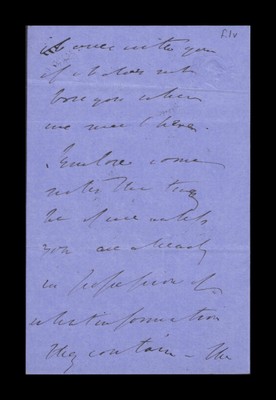 it over with you
if it does not
bore you when
we meet here.
I enclose some
notes tho' they
be of use
you are already
in possession of
what information
they contain – the